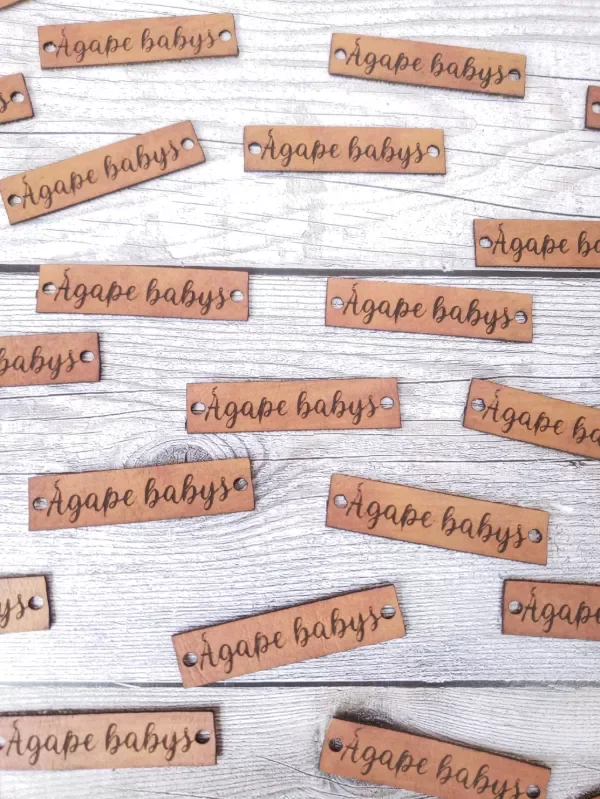 Ágape babys
Ágape babys
s
Ágape babys
Ágape babys
Ágape ba
Ágape babys
Ágape babys
babys
Ágape babys
Ágape ba
Ágape babys
Ágape babys
ys
Ágape
Ágape babys
Ágape babys
Ágape babys